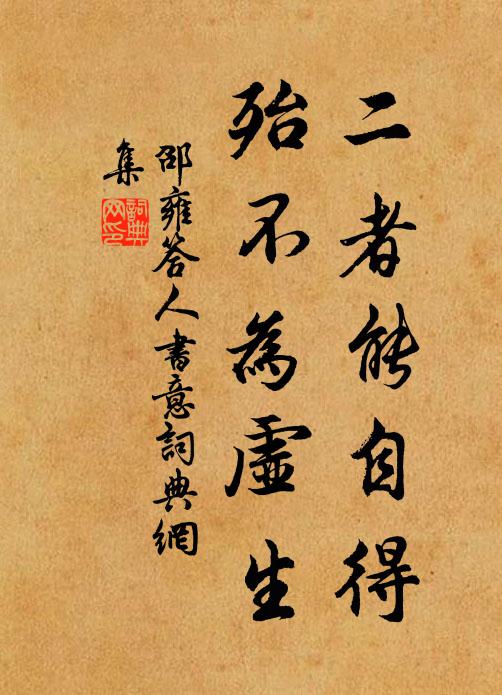 二者能自得
殆不為虛生
邵雍答人書意詞典網
集
詞典網印